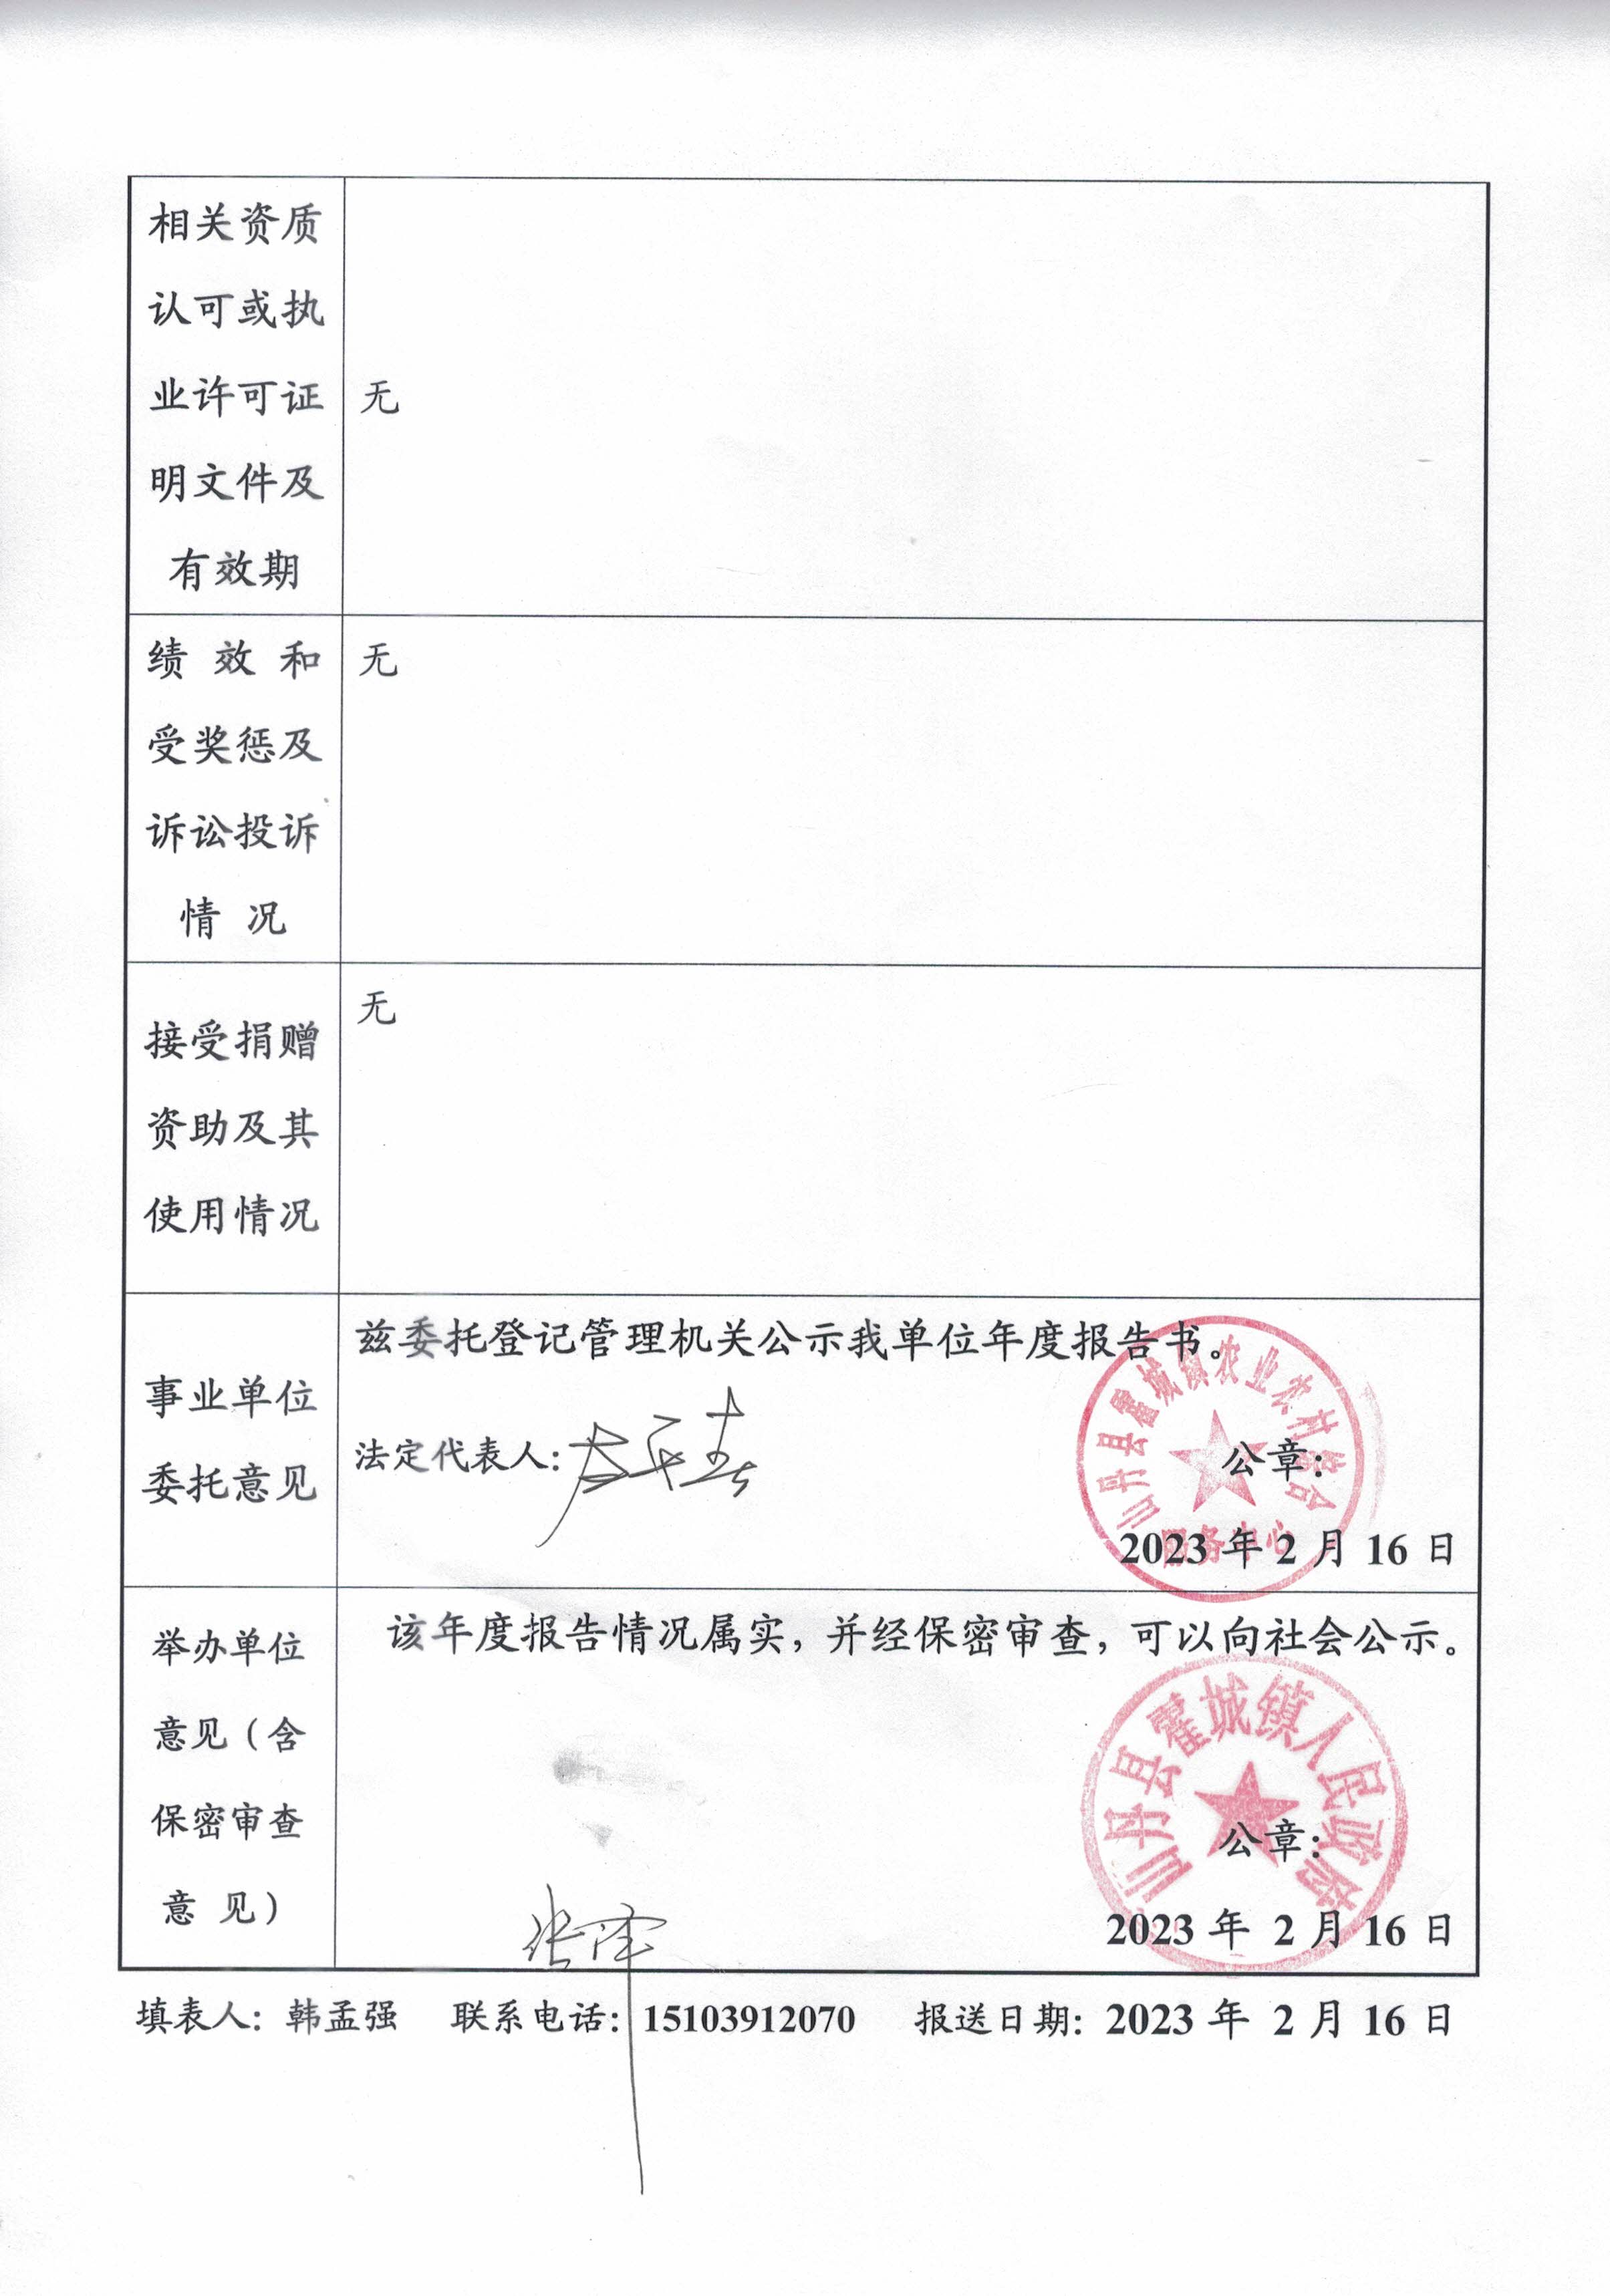 相关资质
认可或执
业许可证
明文件及
有效期
无
绩效和
受奖惩及
诉讼投诉
情况
无
接受捐赠
资助及其
使用情况
无
事业单位
委托意见
兹委托登记管理机关公示我单位年度报告书。
法定代表人:
山丹县霍城镇农业农村综合
服务中心
公章:
2023 年 2 月 16 日
举办单位
意见（含
保密审查
意见）
该年度报告情况属实，并经保密审查，可以向社会公示。
山丹县霍城镇人民政府
公章:
2023 年 2 月 16 日
填表人: 韩孟强 联系电话: 15103912070 报送日期: 2023 年 2 月 16 日